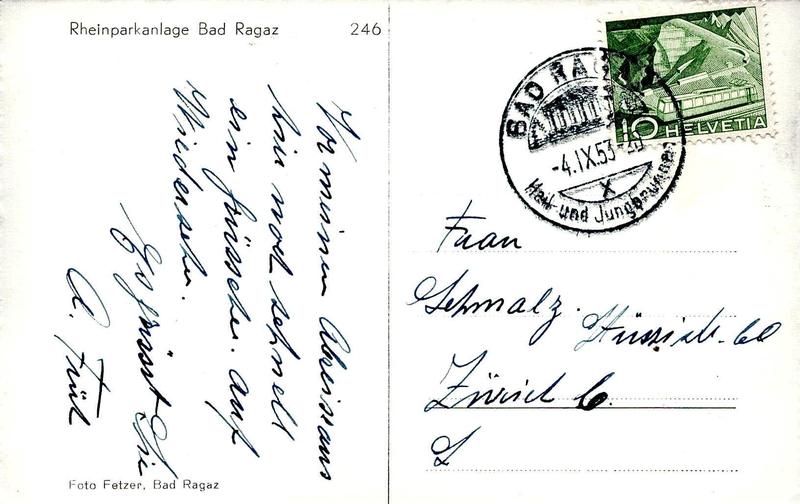 Rheinparkanlage Bad Ragaz 246
Vor meinen
noch schnell
ein grüsschen. auf
Wiedersehn.
Es grüsst Sie
A. Früh
Foto Fetzer, Bad Ragaz
BAD RAGAZ
-4.IX.53
X
Heil-und Jungbrunnen
10 HELVETIA
Frau
Schmalz.
60
Zürich 6.